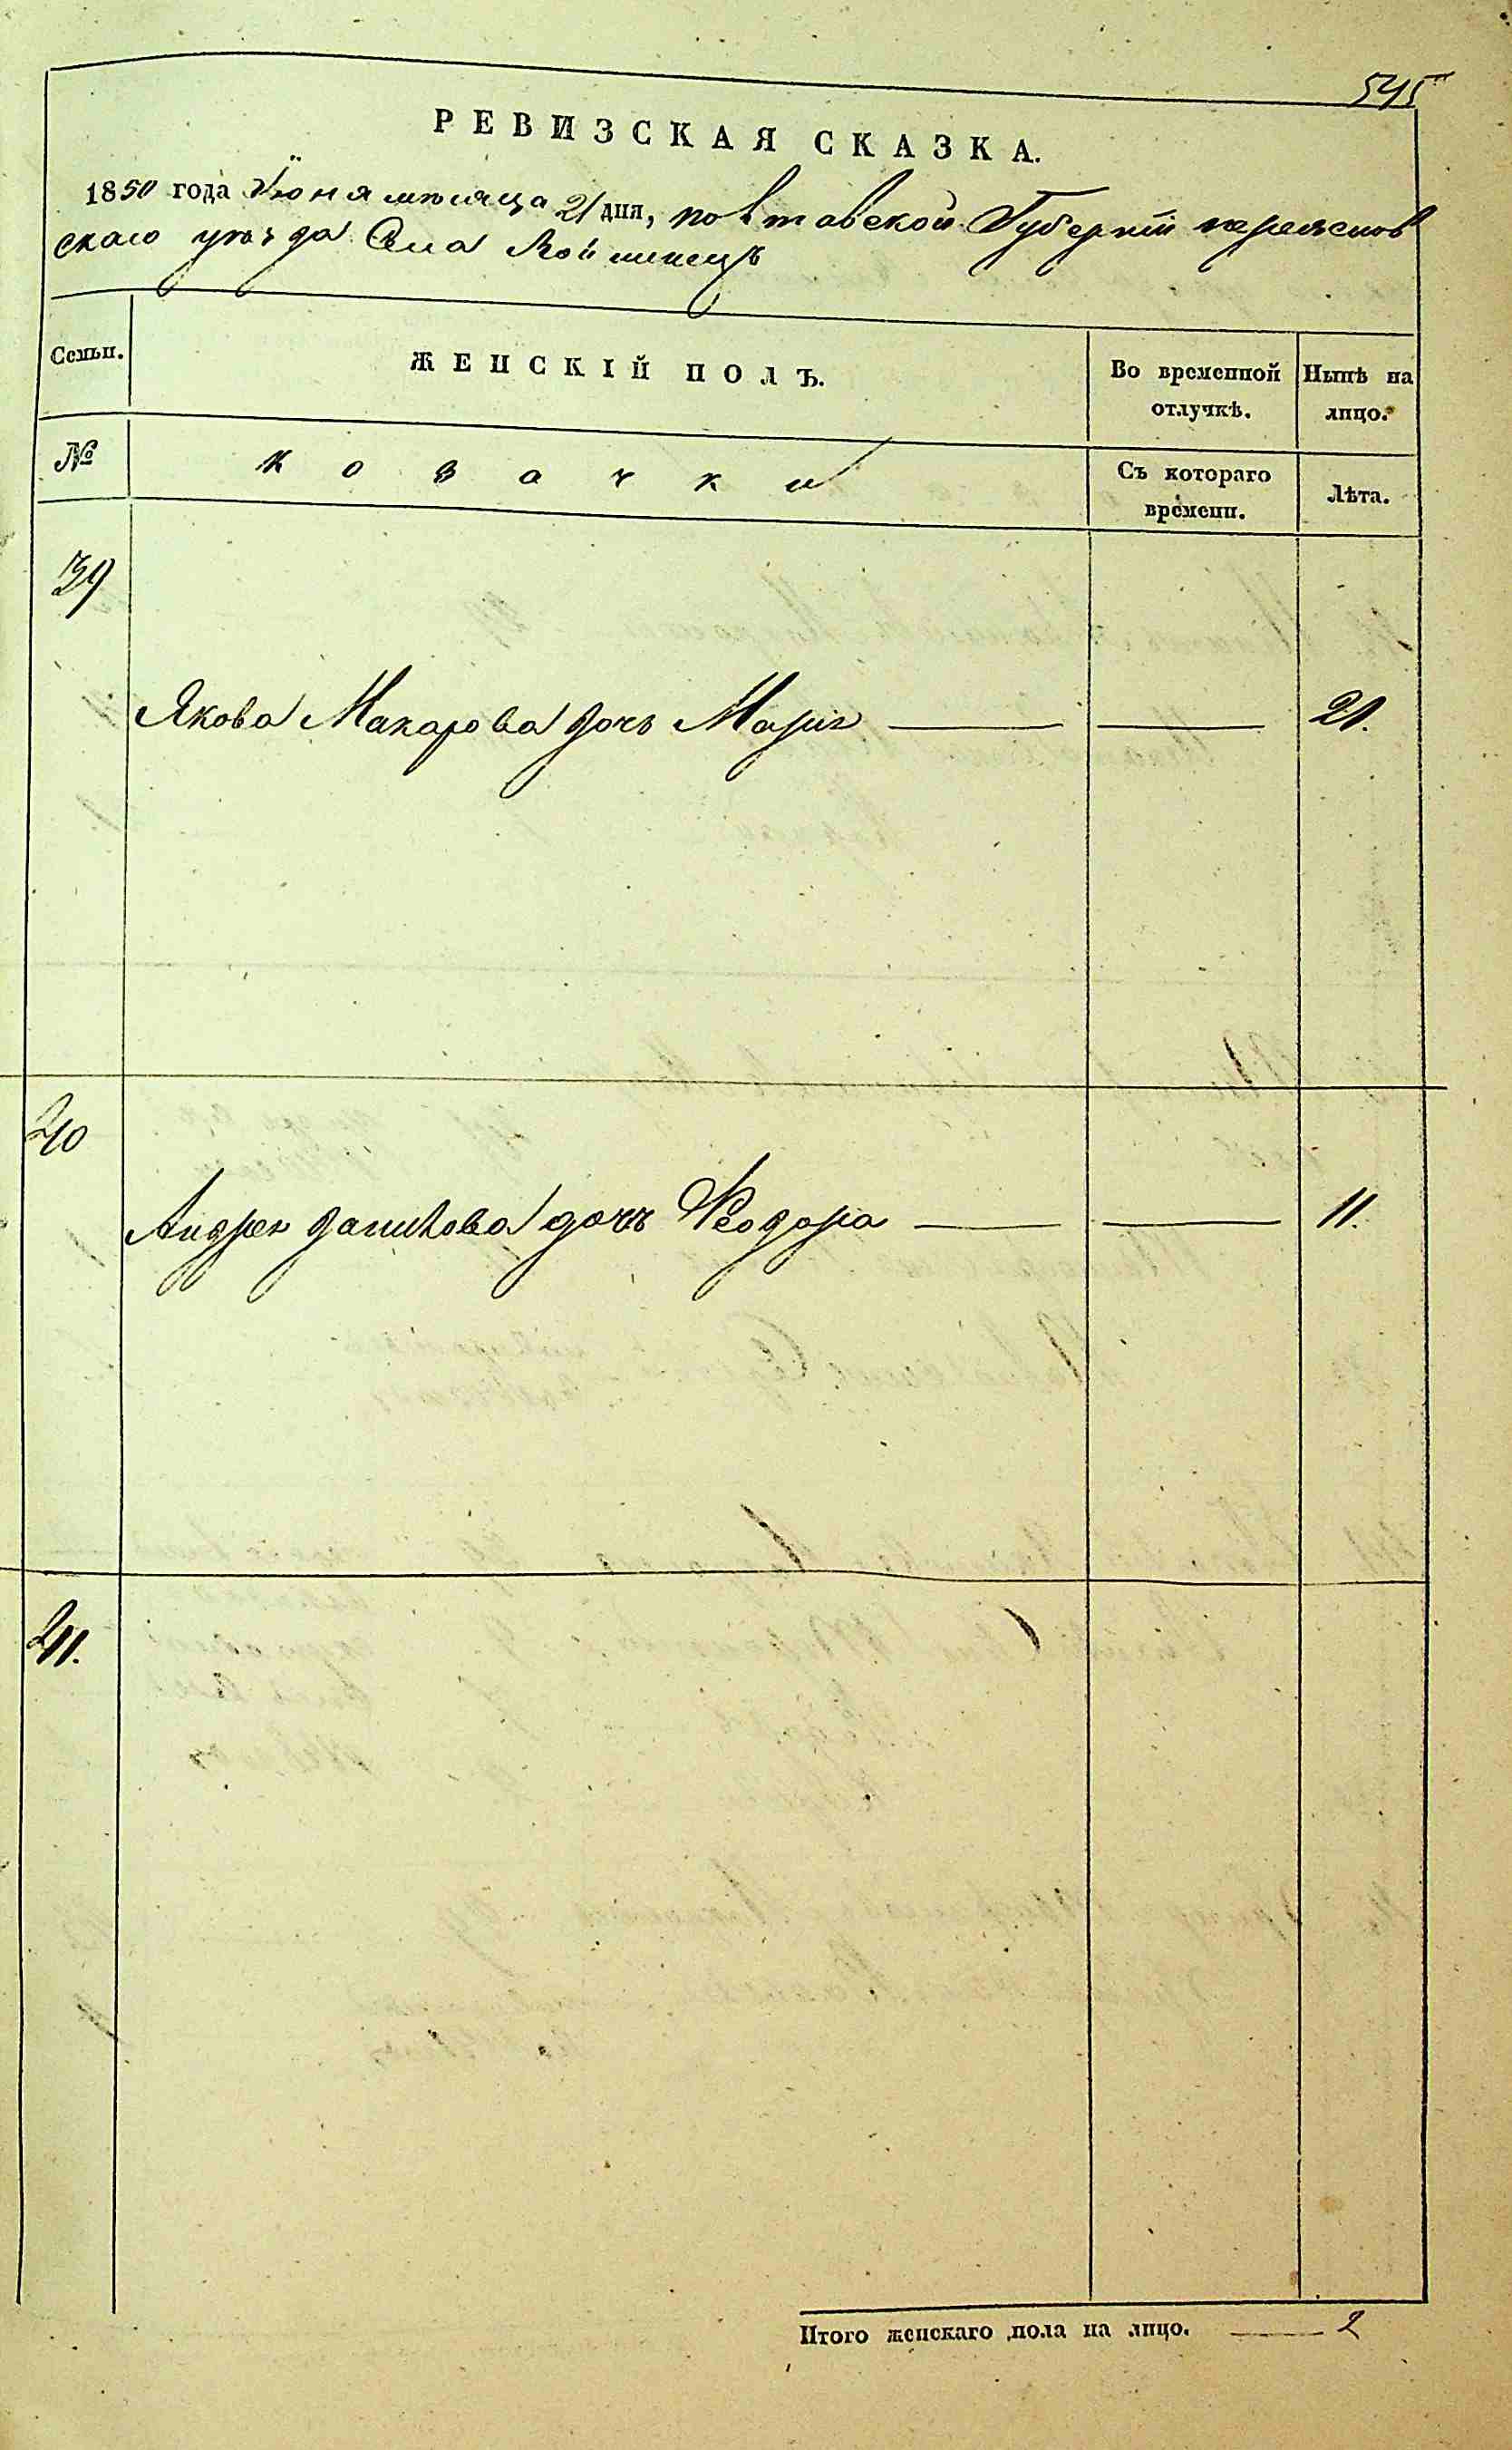 545
РЕВИЗСКАЯ СКАЗКА.
1850 года Июня месяца 21 дня, Полтавской Губернии переяслов
скаго уезда Села Войтинец
Семьи. ЖЕНСКІЙ ПОЛЪ. Во временной Нынѣ на
отлучкѣ. лицо.
№ козачки Съ котораго
времени. Лѣта.
39
Якова Макарова дочь Мария 21.
40
Андрея данилова дочь Феодора 11.
41.
Итого женскаго пола на лицо. 2